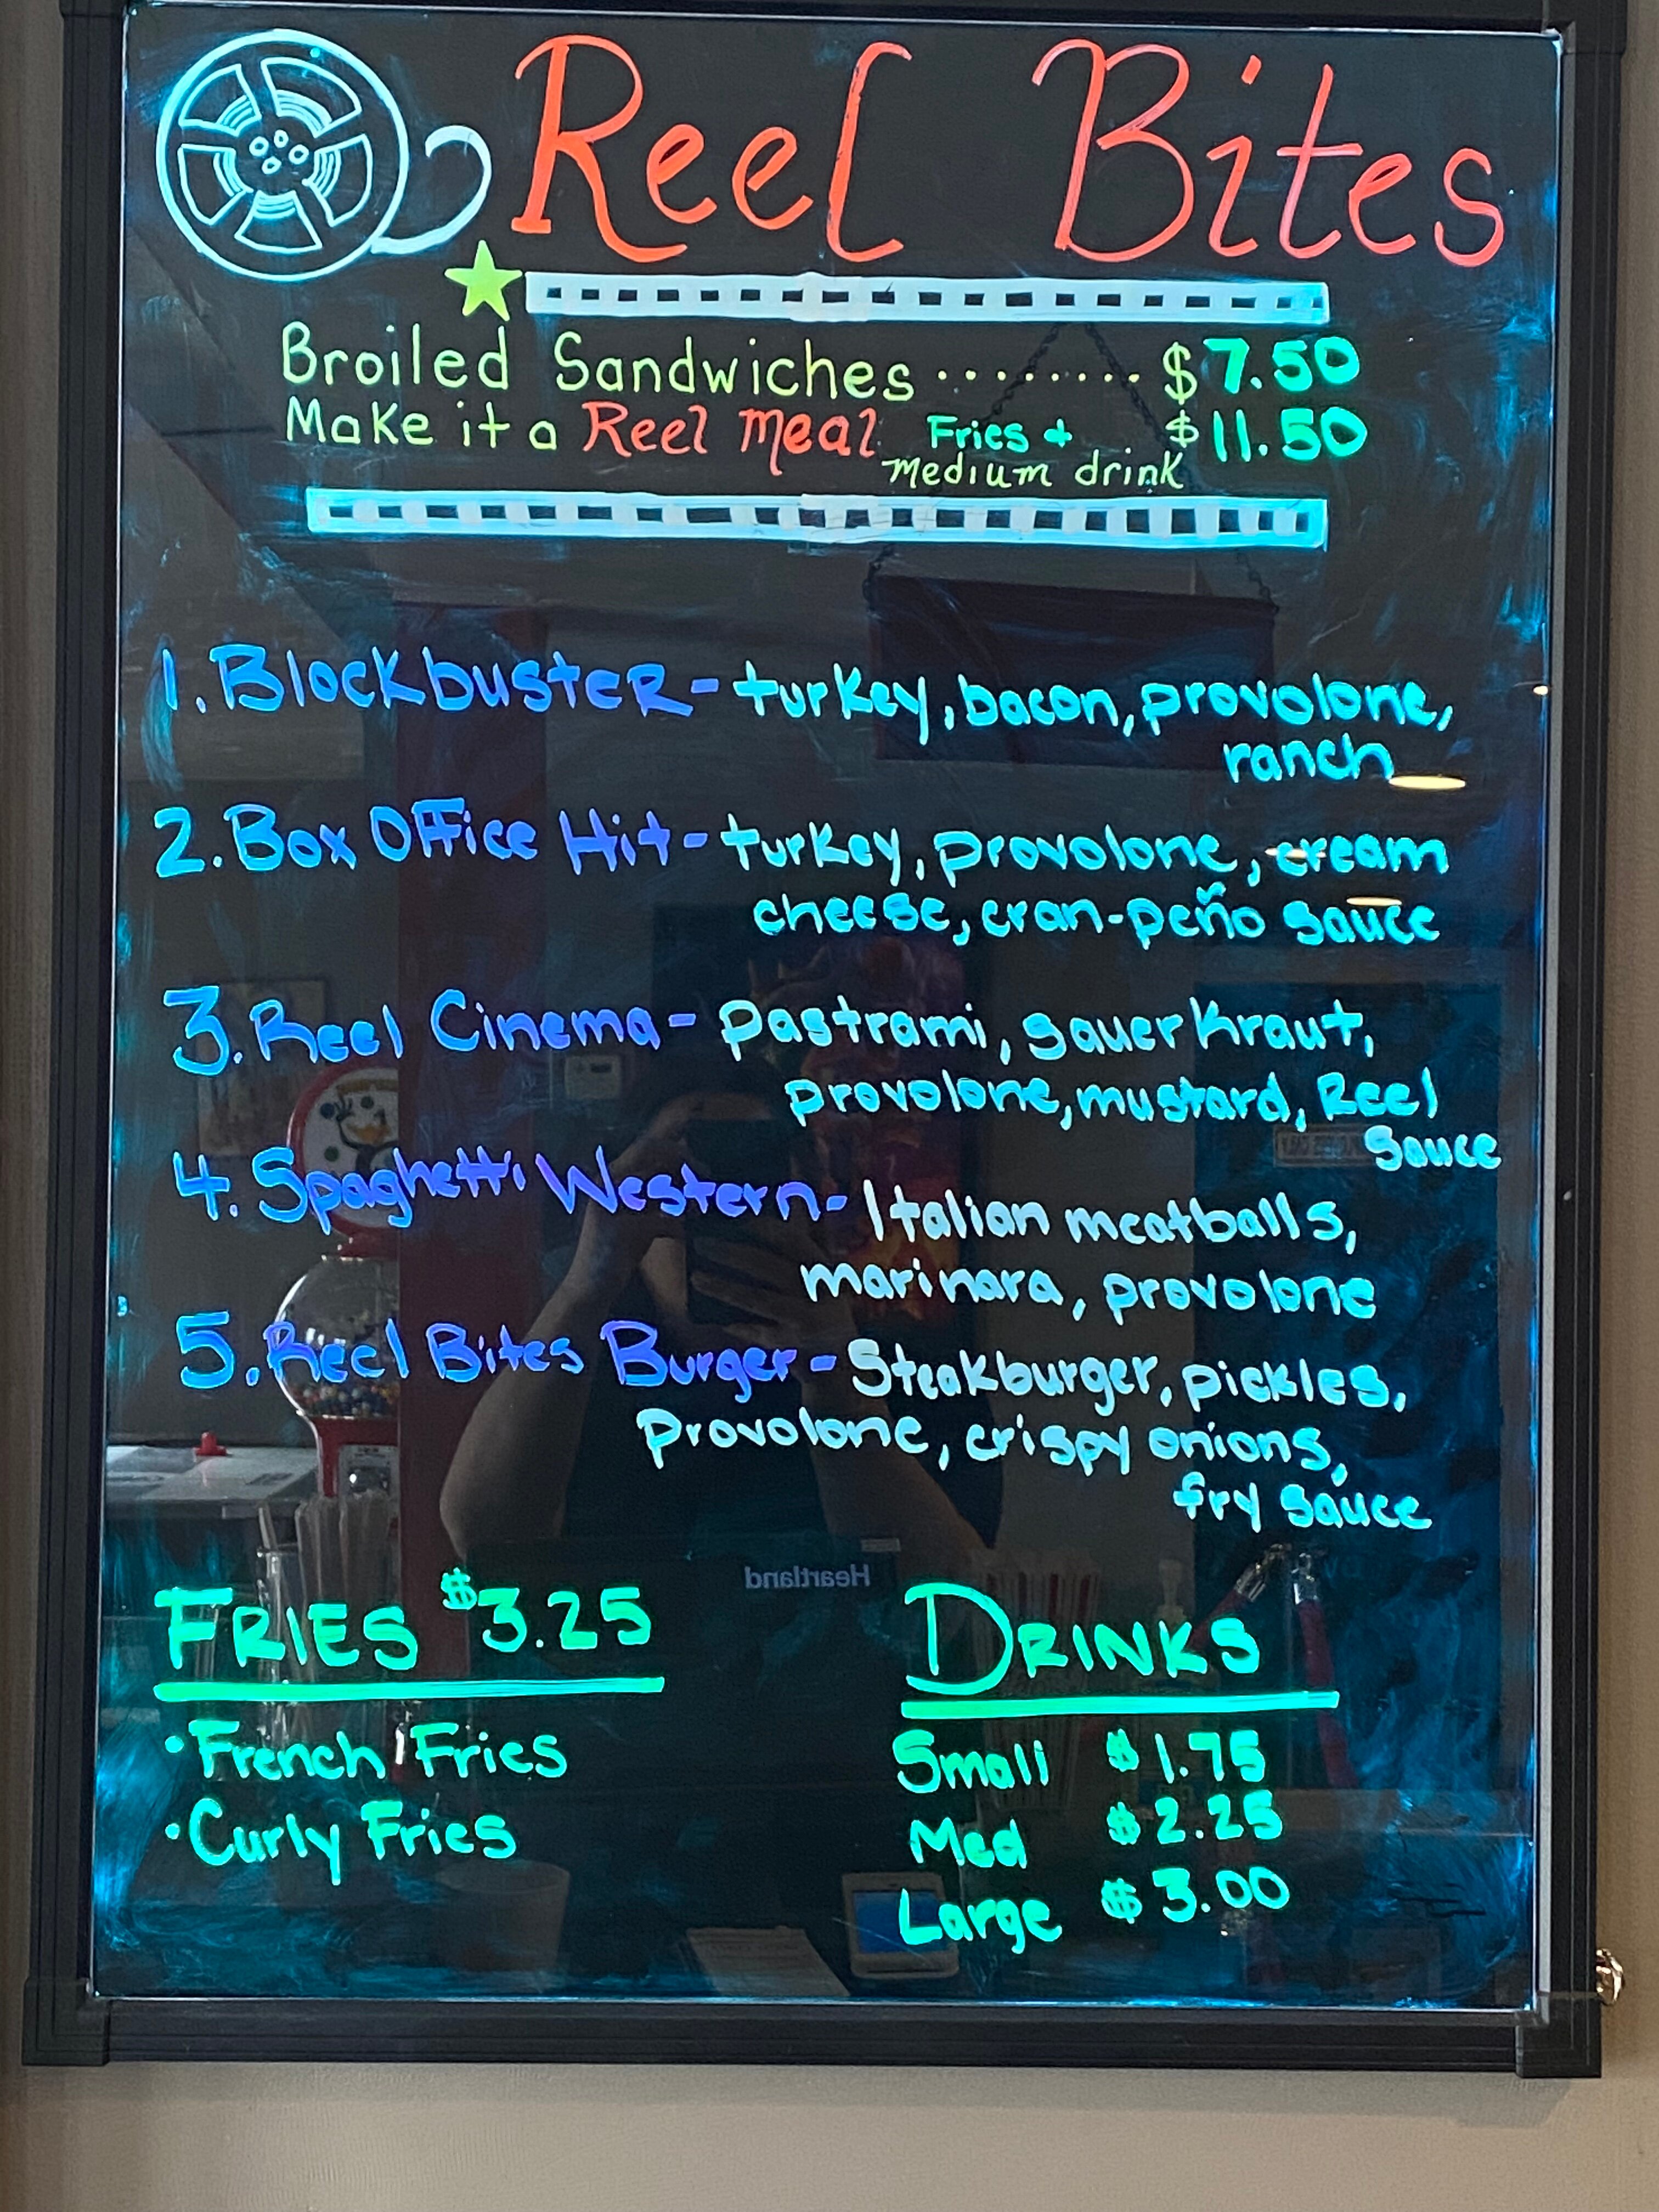 Reel Bites
Broiled Sandwiches ......... $7.50
Make it a Reel meal Fries + $11.50
medium drink
1. Blockbuster - turkey, bacon, provolone,
ranch
2. Box Office Hit - turkey, provolone, cream
cheese, cran-peño sauce
3. Reel Cinema - Pastrami, sauerkraut,
provolone, mustard, Reel
Sauce
4. Spaghetti Western - Italian meatballs,
marinara, provolone
5. Reel Bites Burger - Steakburger, pickles,
Provolone, crispy onions,
fry sauce
FRIES $3.25
• French Fries
• Curly Fries
Heartland
DRINKS
Small $1.75
Med $2.25
Large $3.00